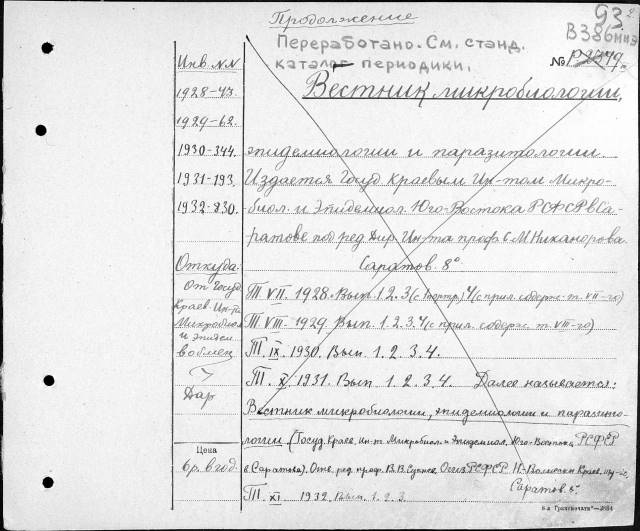 Продолжение
93
В386низ
Переработано. См. станд.
каталог периодики.
№
Инв. №№
Вестник микробиологии,
1928-43.
1929-62.
1930-344. эпидемиологии и паразитологии.
1931-193. Издается Госуд. Краевым Ин-том Микро-
1932-830. биол. и Эпидемиол. Юго-Востока РСФСР в Са-
ратове под ред. Дир. Ин-та проф. С. М. Никанорова.
Откуда: Саратов. 8°
От Госуд. Т. VII. 1928. Вып. 1. 2. 3 4 (с прил. содерж. т. VII-го)
Краев. Ин-та
Микробиол. Т. VIII. 1929. Вып. 1. 2. 3. 4 (с прил. содерж. т. VIII-го)
и Эпидем.
в обмен Т. IX. 1930. Вып. 1. 2. 3. 4.
Т. X. 1931. Вып. 1. 2. 3. 4. Далее называется:
Дар
Вестник микробиологии, эпидемиологии и паразито-
логии (Госуд. Краев. Ин-т Микробиол. и Эпидемиол. Юго-Востока РСФСР
Цена
6 р. в год. в Саратове). Отв. ред. проф. В. В. Огиз. РСФСР. Н.-Волжское Краев. изд-во,
Саратов.
Т. XI. 1932. Вып. 1. 2. 3.